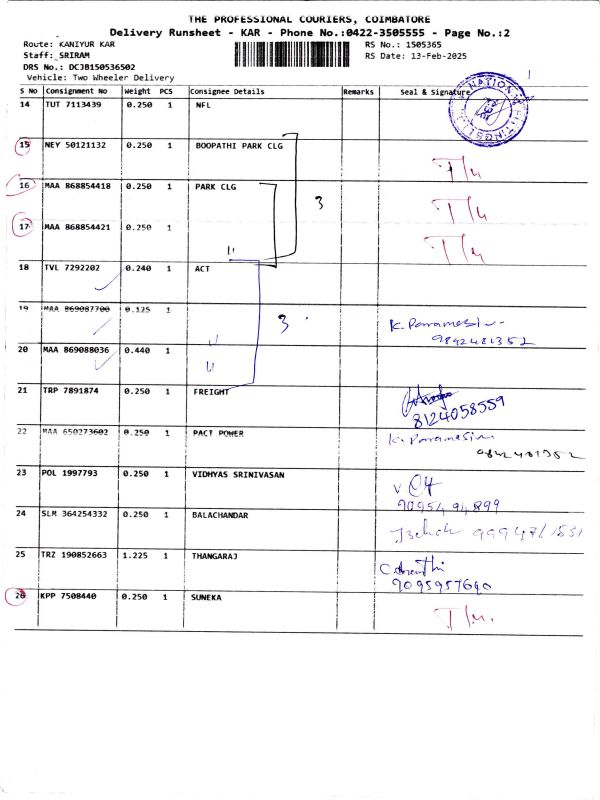 THE PROFESSIONAL COURIERS, COIMBATORE
Delivery Runsheet - KAR - Phone No.:0422-3505555 - Page No.:2
Route: KANIYUR KAR RS No.: 1505365
Staff: SRIRAM RS Date: 13-Feb-2025
DRS No.: DCJB150536502
Vehicle: Two Wheeler Delivery
S No Consignment No Weight PCS Consignee Details Remarks Seal & Signature
14 TUT 7113439 0.250 1 NFL
15 NEY 50121132 0.250 1 BOOPATHI PARK CLG
16 MAA 868854418 0.250 1 PARK CLG
3
17 MAA 868854421 0.250 1
18 TVL 7292202 0.240 1 ACT
19 MAA 869087700 0.125 1
3
9842481352
20 MAA 869088036 0.440 1
21 TRP 7891874 0.250 1 FREIGHT
8124058559
22 MAA 650273602 0.250 1 PACT POWER
23 POL 1997793 0.250 1 VIDHYAS SRINIVASAN
24 SLM 364254332 0.250 1 BALACHANDAR
25 TRZ 190852663 1.225 1 THANGARAJ
9095957690
26 KPP 7508440 0.250 1 SUNEKA